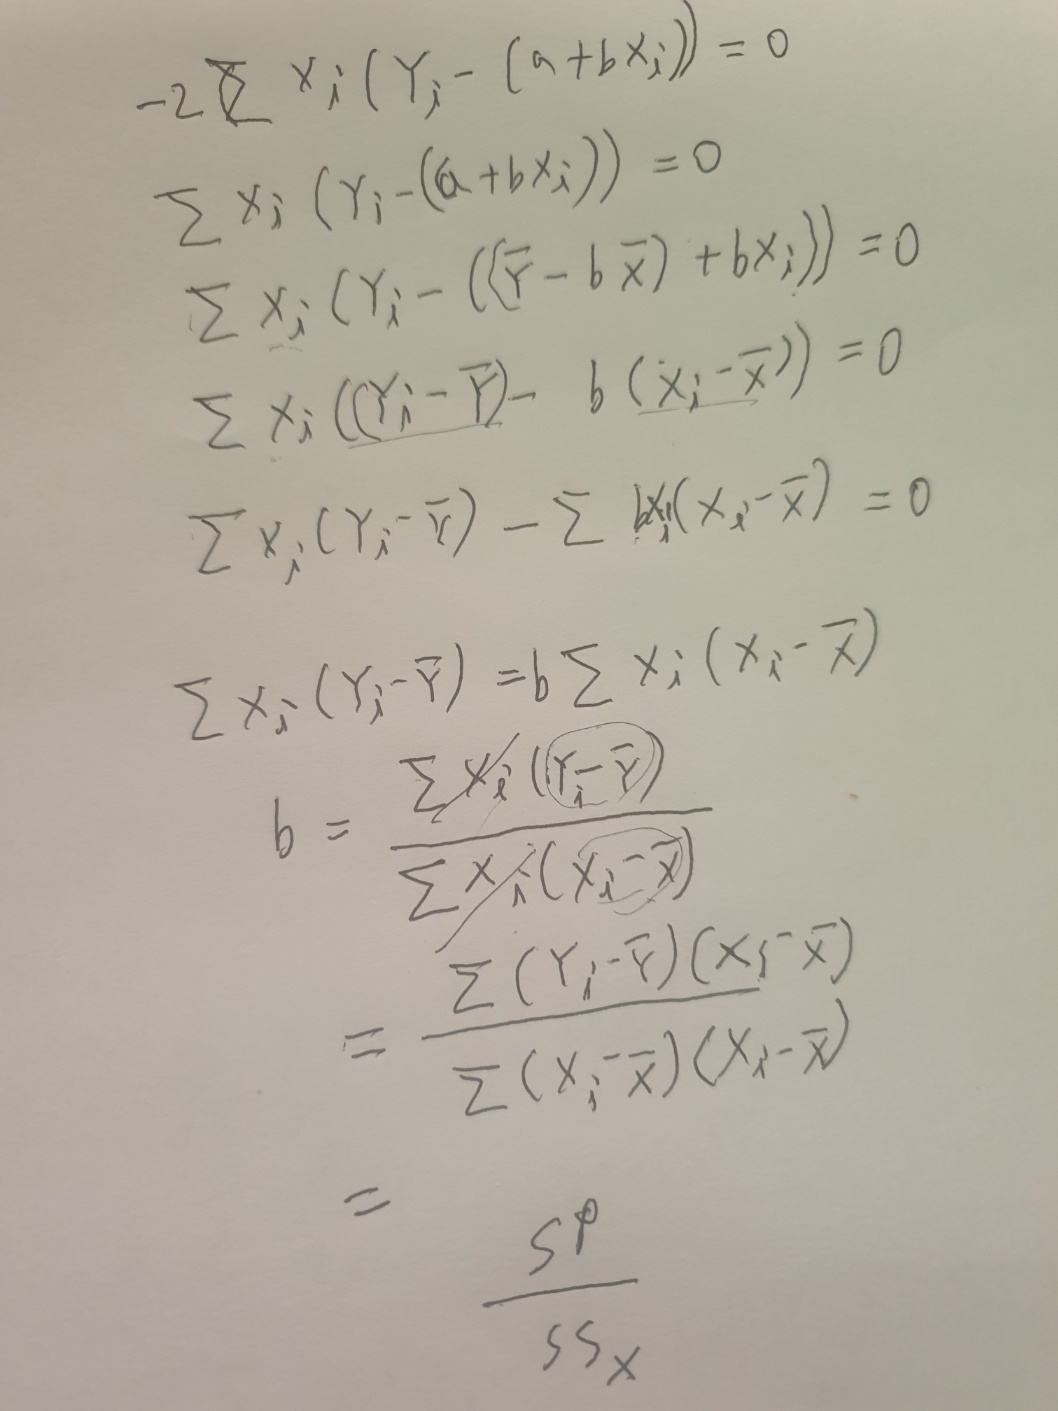 -2 Σ Xi (Yi - (a+bXi)) = 0
Σ Xi (Yi - (a+bXi)) = 0
Σ Xi (Yi - ((Ȳ - b X̄) + bXi)) = 0
Σ Xi ((Yi - Ȳ) - b (Xi - X̄)) = 0
Σ Xi (Yi - Ȳ) - Σ bXi (Xi - X̄) = 0
Σ Xi (Yi - Ȳ) = b Σ Xi (Xi - X̄)
Σ Xi (Yi - Ȳ)
b =
Σ Xi (Xi - X̄)
Σ (Yi - Ȳ) (Xi - X̄)
=
Σ (Xi - X̄) (Xi - X̄)
=
SP
SSx